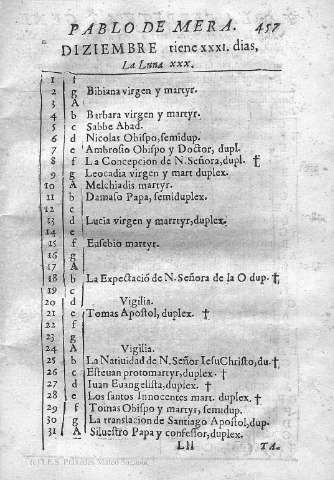 PABLO DE MERA. 457
DIZIEMBRE tiene xxxi. dias,
La Luna xxx.
1 f
2 g Bibiana virgen y martyr.
3 A
4 b Barbara virgen y martyr.
5 c Sabbe Abad.
6 d Nicolas Obispo, semidup.
7 e Ambrosio Obispo y Doctor, dupl.
8 f La Concepcion de N. Señora, dupl. †
9 g Leocadia virgen y mart duplex.
10 A Melchiadis martyr.
11 b Damaso Papa, semiduplex.
12 c
13 d Lucia virgen y martyr, duplex.
14 e
15 f Eusebio martyr.
16 g
17 A
18 b La Expectació de N. Señora de la O dup. †
19 c
20 d Vigilia.
21 e Tomas Apostol, duplex. †
22 f
23 g
24 A Vigilia.
25 b La Natiuidad de N. Señor Iesu Christo, du. †
26 c Esteuan protomartyr, duplex. †
27 d Iuan Euangelista, duplex. †
28 e Los santos Innocentes mart. duplex. †
29 f Tomas Obispo y martyr, semidup.
30 g La translacion de Santiago Apostol, dup.
31 A Siluestro Papa y confessor, duplex.
Lll TA.
(c) I.E.S. Práxedes Mateo Sagasta